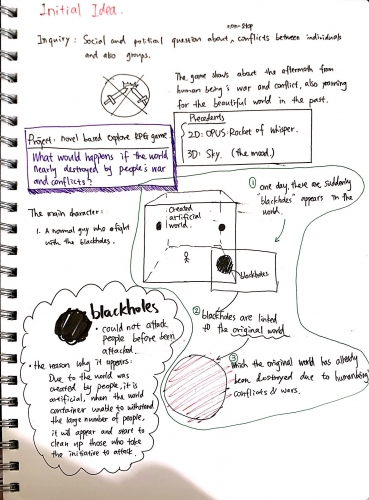 Initial Idea.
non-stop
Inquiry: Social and political question about conflicts between individuals
and also groups.
The game shows about the aftermath from
human being's war and conflict, also yearning
for the beautiful world in the past.
Precedents
2D: OPUS: Rocket of whisper.
3D: Sky. (the mood)
Project: novel based explore RPG game
What would happens if the world
nearly destroyed by people's war
and conflicts?
① one day, there are suddenly
"blackholes" appears in the
world.
The main character:
1. A normal guy who afight
with the blackholes.
created
artificial
world.
blackholes
② blackholes are linked
to the original world
③ Which the original world has already
been destroyed due to humanbeing's
conflicts & wars.
blackholes
• could not attack
people before been
attacked.
• the reason why it appears:
Due to the world was
created by people, it is
artificial, when the world
container unable to withstand
the large number of people,
it will appear and stare to
clean up those who take
the initiative to attack.